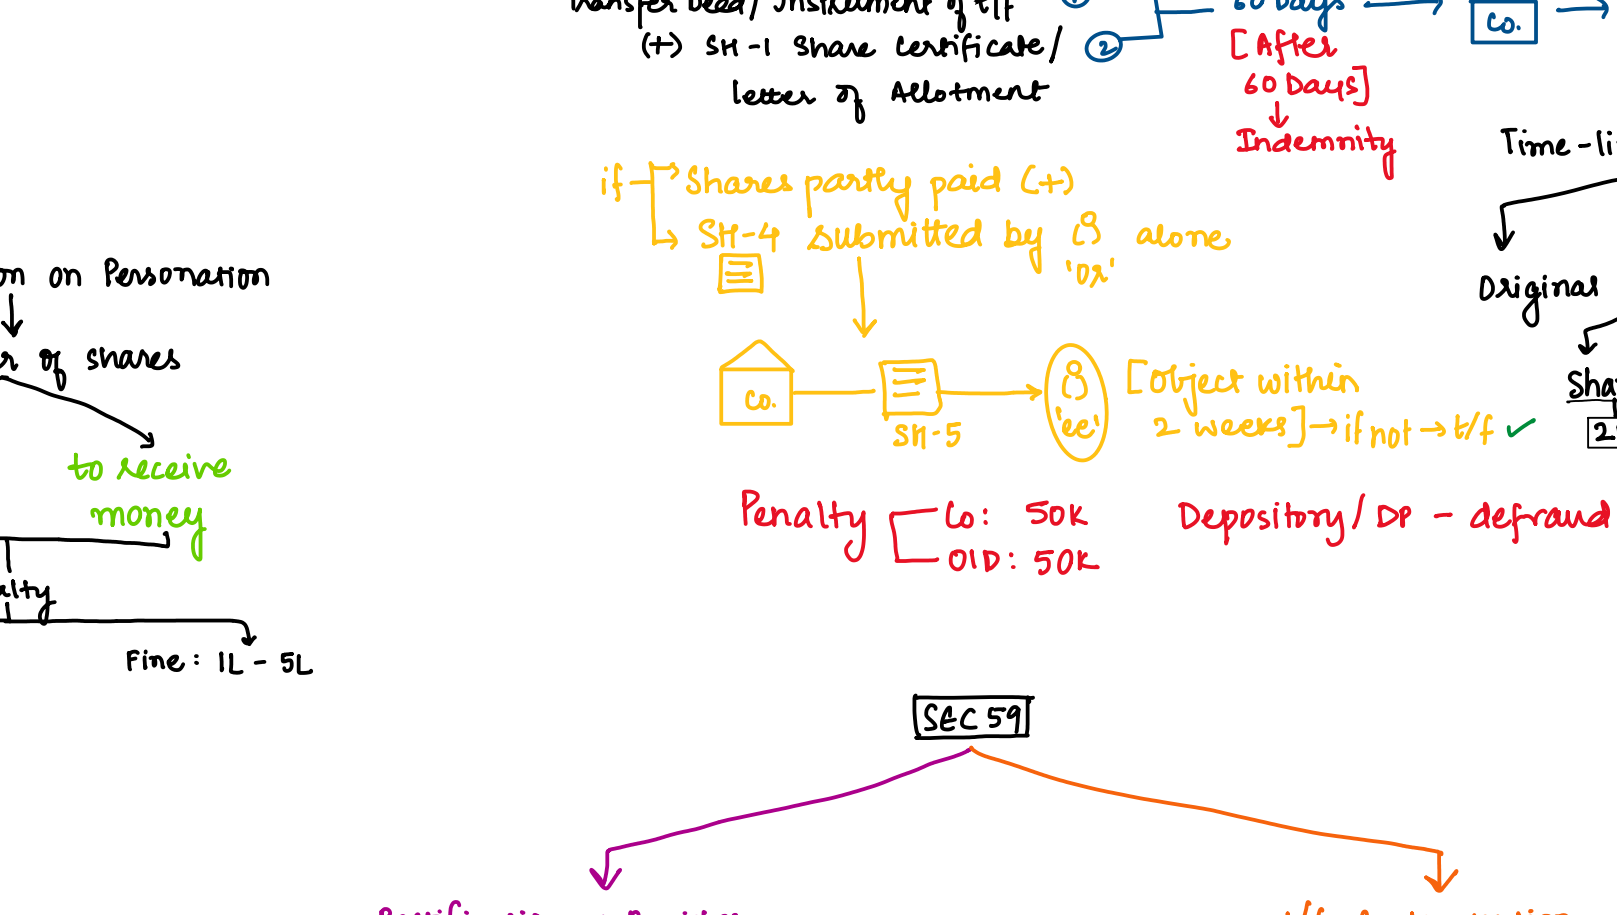 Transfer Deed / Instrument of t/f
(+) SH-1 Share Certificate/
letter of Allotment
①
②
60 Days
[After
60 Days]
Indemnity
Co.
if
Shares partly paid (+)
SH-4 submitted by alone
'or'
Co.
SH-5
'ee'
[Object within
2 weeks] → if not → t/f ✓
Penalty
Co: 50K
OID: 50K
Depository/DP - defraud
on Personation
of shares
to receive
money
Fine: 1L - 5L
Original
SEC 59